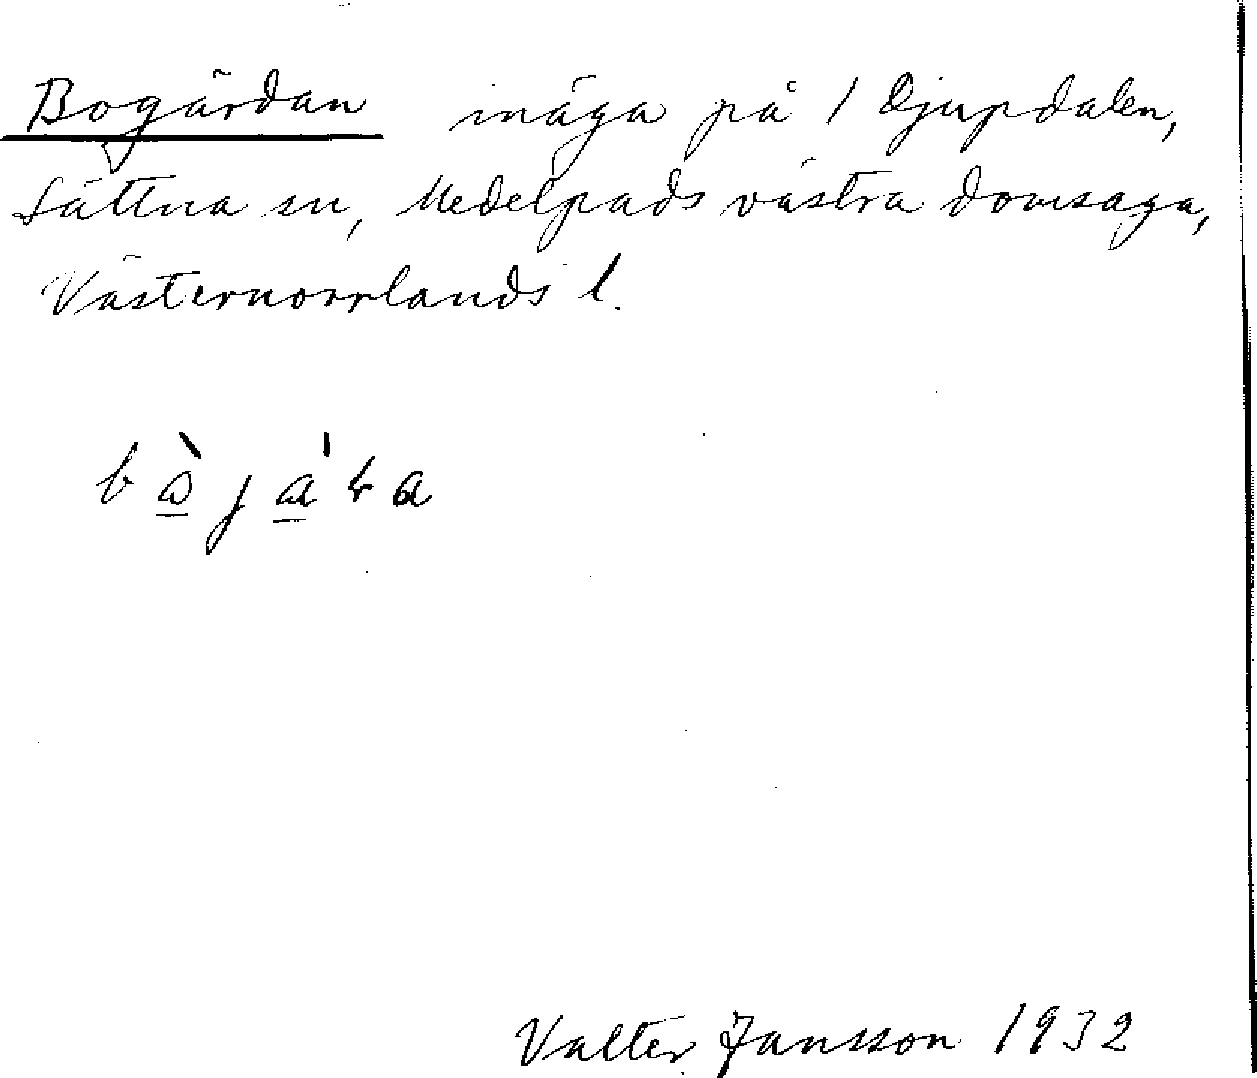 Bogärdan inäga på 1 Djupdalen,
Sättna sn, Medelpads västra domsaga,
Västernorrlands l.
Valter Jansson 1932